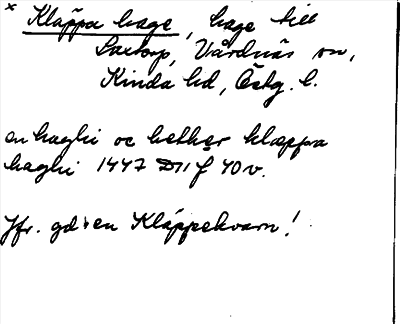 × Kläppa hage, hage till
Saxtorp, Vårdnäs sn,
Kinda hd, Östg. l.
en haghi oc hether klæppa
haghi 1447 D11 f 40v.
Jfr. gd en Kläppekvarn!